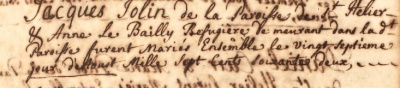 Jacques Jolin de la Paroisse de St Helier
& Anne Le Bailly Refugière demeurant dans la dt
Paroisse furent Mariés Ensemble le vingt septieme
jour d'Aoust Mille Sept Cents Soixantes deux